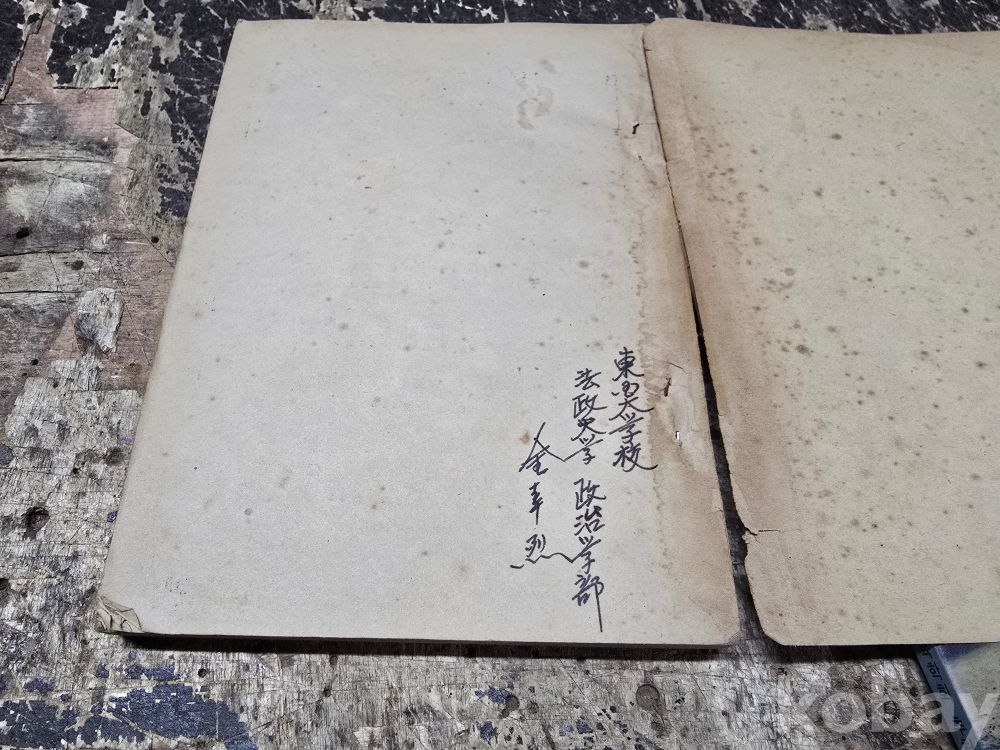 東国大学校
法政大学 政治学部
金幸烈
kobay